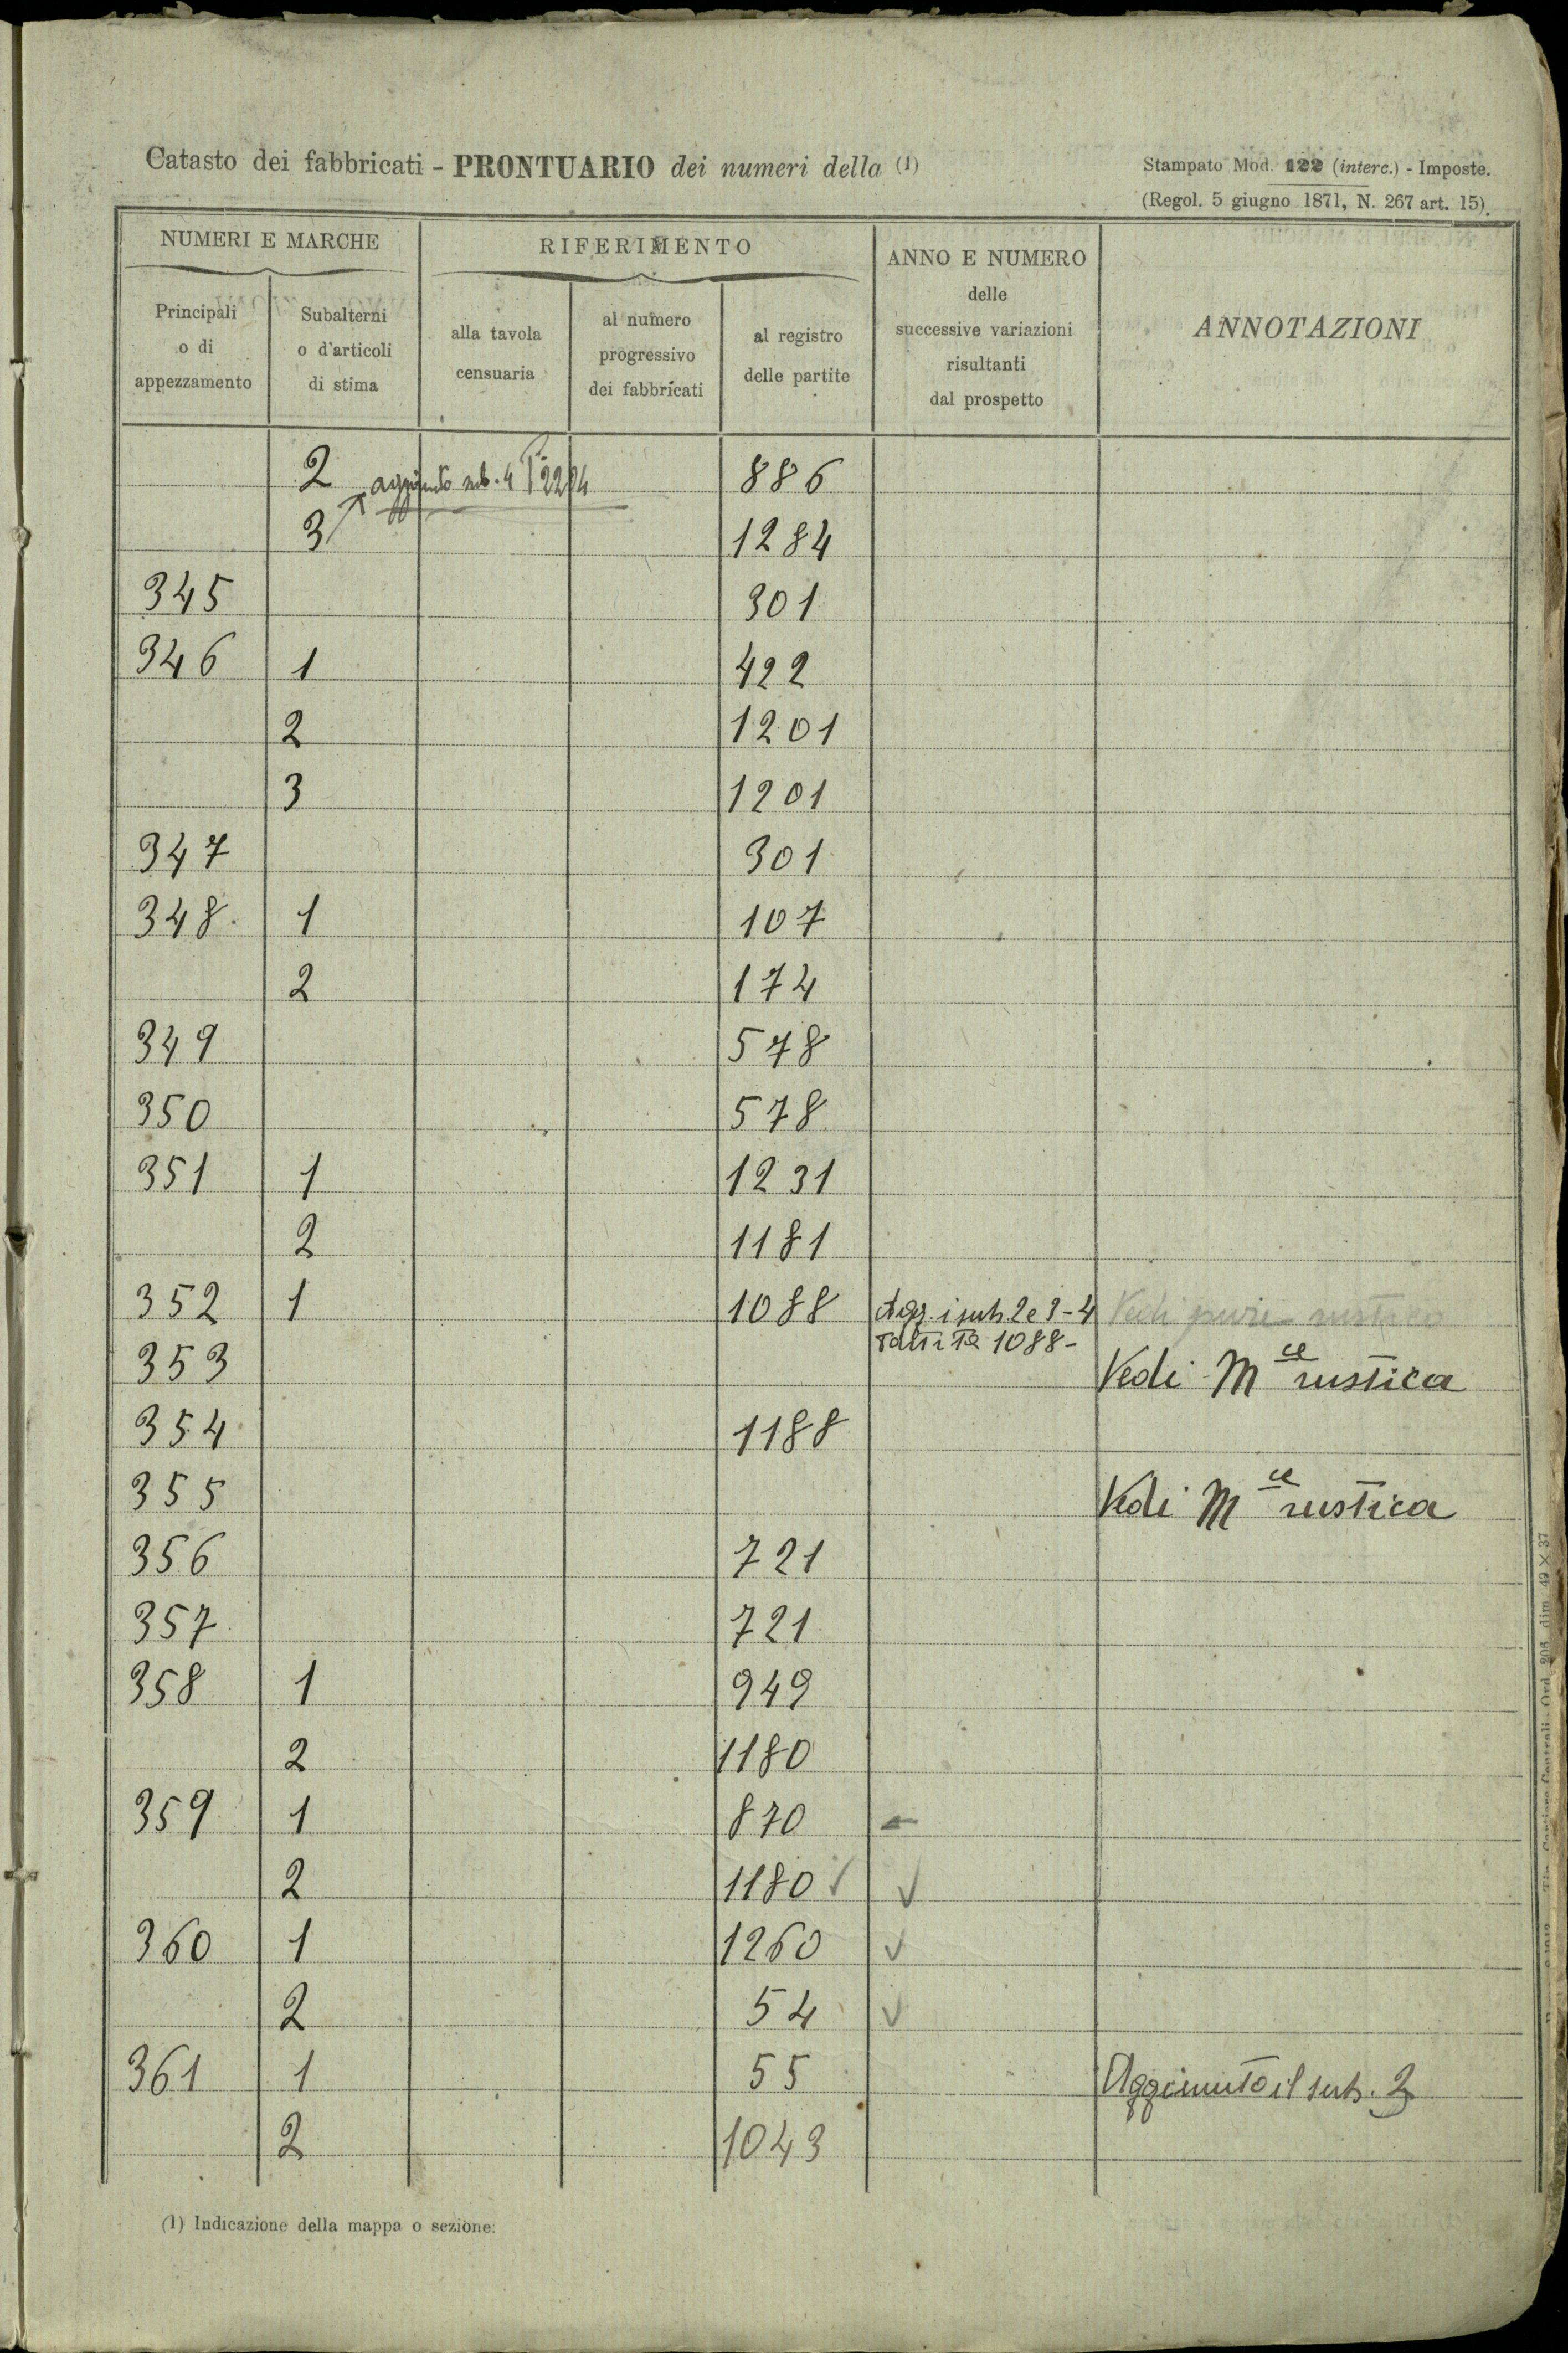 Catasto dei fabbricati - PRONTUARIO dei numeri della (1)
Stampato Mod. 122 (interc.) - Imposte.
(Regol. 5 giugno 1871, N. 267 art. 15).
NUMERI E MARCHE
RIFERIMENTO
ANNO E NUMERO
delle
successive variazioni
risultanti
dal prospetto
ANNOTAZIONI
Principali
o di
appezzamento
Subalterni
o d'articoli
di stima
alla tavola
censuaria
al numero
progressivo
dei fabbricati
al registro
delle partite
2 aggiunto sub. 4 P. 2294 886
3 1284
345 301
346 1 422
2 1201
3 1201
347 301
348 1 107
2 174
349 578
350 578
351 1 1231
2 1181
352 1 1088 Agg. i sub. 2 e 3-4 Vedi pure rustico
1088-
353 Vedi M ce rustica
354 1188
355 Vedi M ce rustica
356 721
357 721
358 1 949
2 1180
359 1 870
2 1180 ✓ ✓
360 1 1260 ✓
2 54 ✓
361 1 55 Aggiunto il sub. 2
2 1043
(1) Indicazione della mappa o sezione.